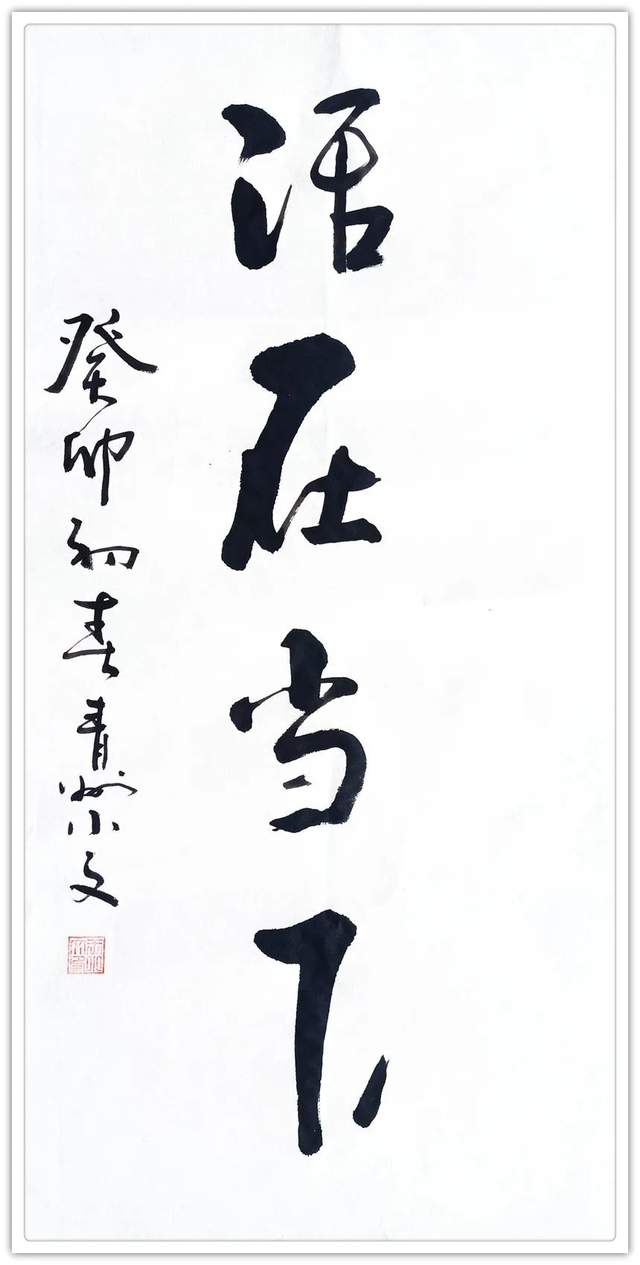 活在当下
癸卯初春青州小文